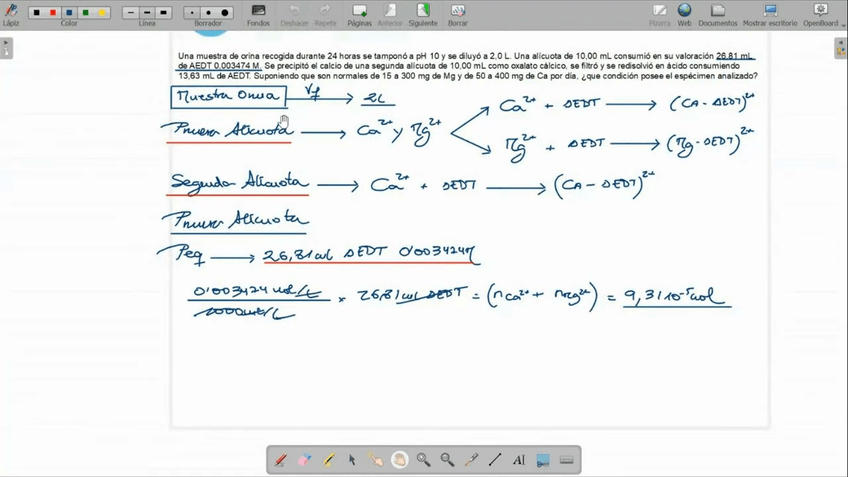 Lápiz
Color
Línea
Borrador
Fondos
Deshacer
Repetir
Páginas
Anterior
Siguiente
Borrar
Pizarra
Web
Documentos
Mostrar escritorio
OpenBoard
Una muestra de orina recogida durante 24 horas se tamponó a pH 10 y se diluyó a 2,0 L. Una alícuota de 10,00 mL consumió en su valoración 26,81 mL
de AEDT 0,003474 M. Se precipitó el calcio de una segunda alícuota de 10,00 mL como oxalato cálcico, se filtró y se redisolvió en ácido consumiendo
13,63 mL de AEDT. Suponiendo que son normales de 15 a 300 mg de Mg y de 50 a 400 mg de Ca por día, ¿que condición posee el espécimen analizado?
Muestra Orina Vf 2L
Ca2+ + AEDT → (CA - AEDT)2+
Primera Alicuota → Ca2+ y Mg2+
Mg2+ + AEDT → (Mg - AEDT)2+
Segunda Alicuota → Ca2+ + AEDT → (CA - AEDT)2+
Primera Alicuota
Peq → 26,81 ml AEDT 0'003424M
0'003424 mol/L
1000ml/L
x 26,81 ml AEDT = (nCa2+ + nMg2+) = 9,31 10-5 mol